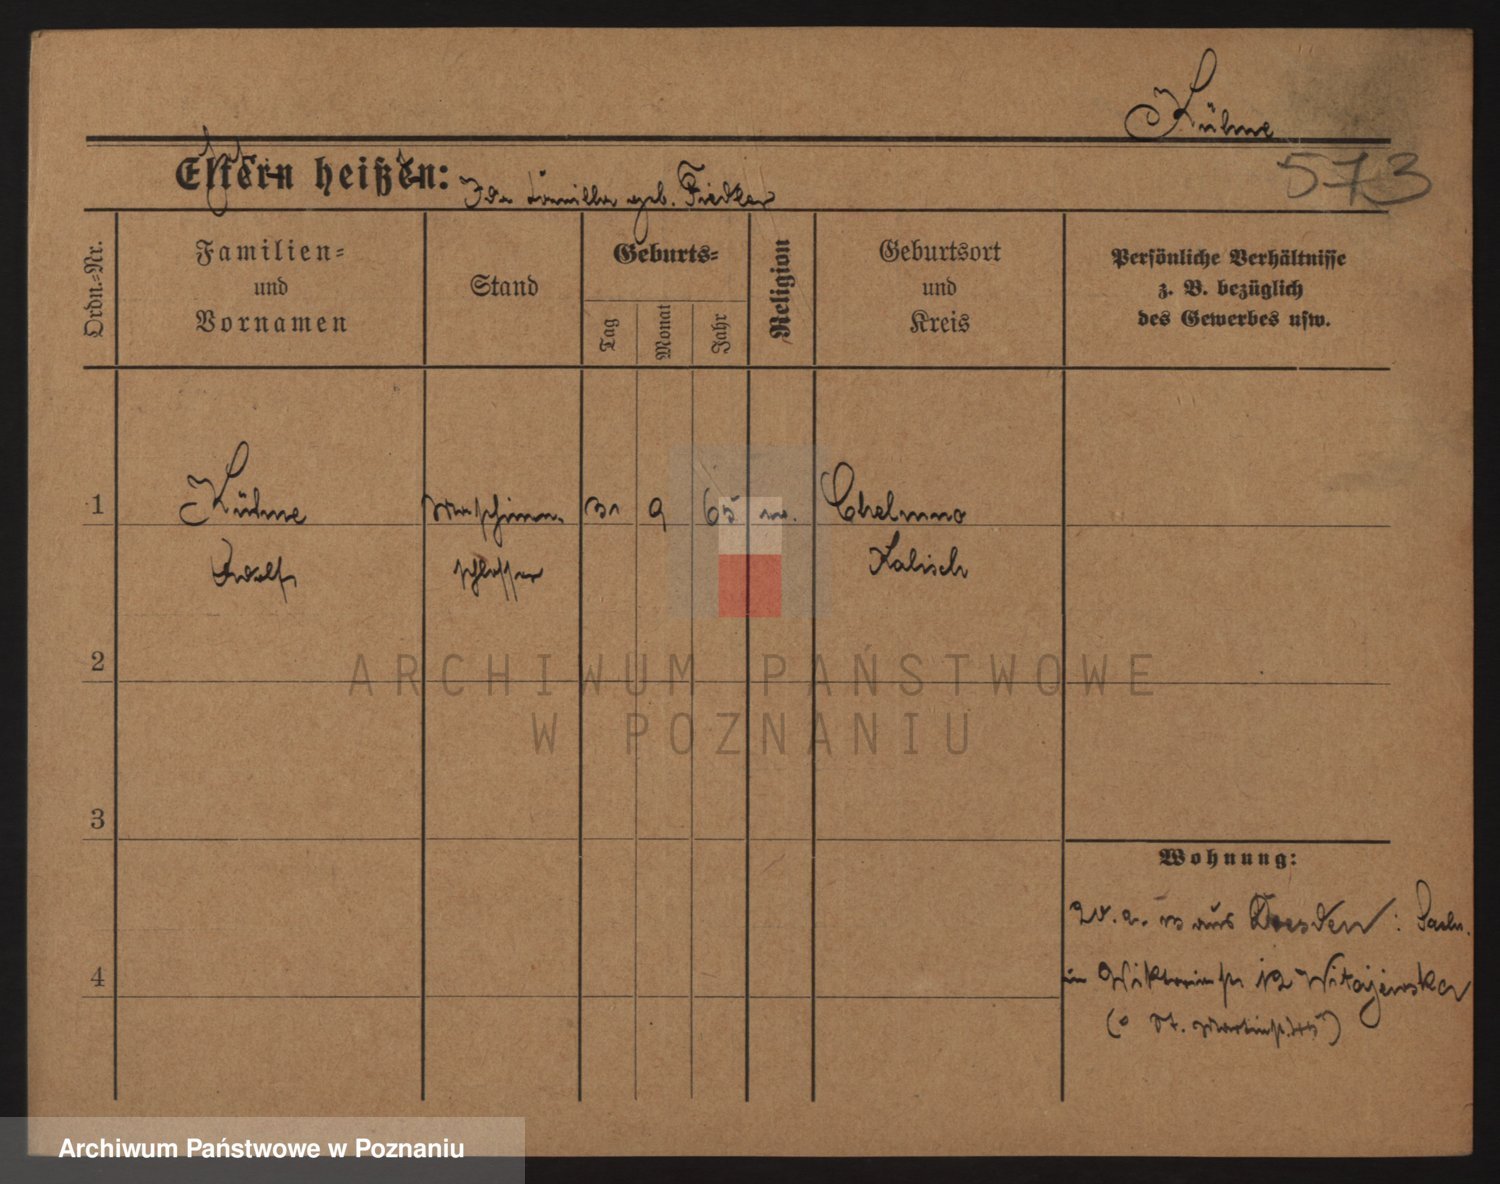 Kühne
573
Eltern heißen: Ida Camilla geb. Fiedler
Ordn.-Nr.
Familien-
und
Vornamen
Stand
Geburts-
Tag
Monat
Jahr
Religion
Geburtsort
und
Kreis
Persönliche Verhältnisse
z. B. bezüglich
des Gewerbes usw.
1
Kühne
Adolf
Maschinen
schlosser
9
65
Chelmno
Kalisch
2
3
4
Wohnung:
aus Dresden : Sachs.
in 12 Witajewska
St. Martinstr.
ARCHIWUM PAŃSTWOWE
W POZNANIU
Archiwum Państwowe w Poznaniu